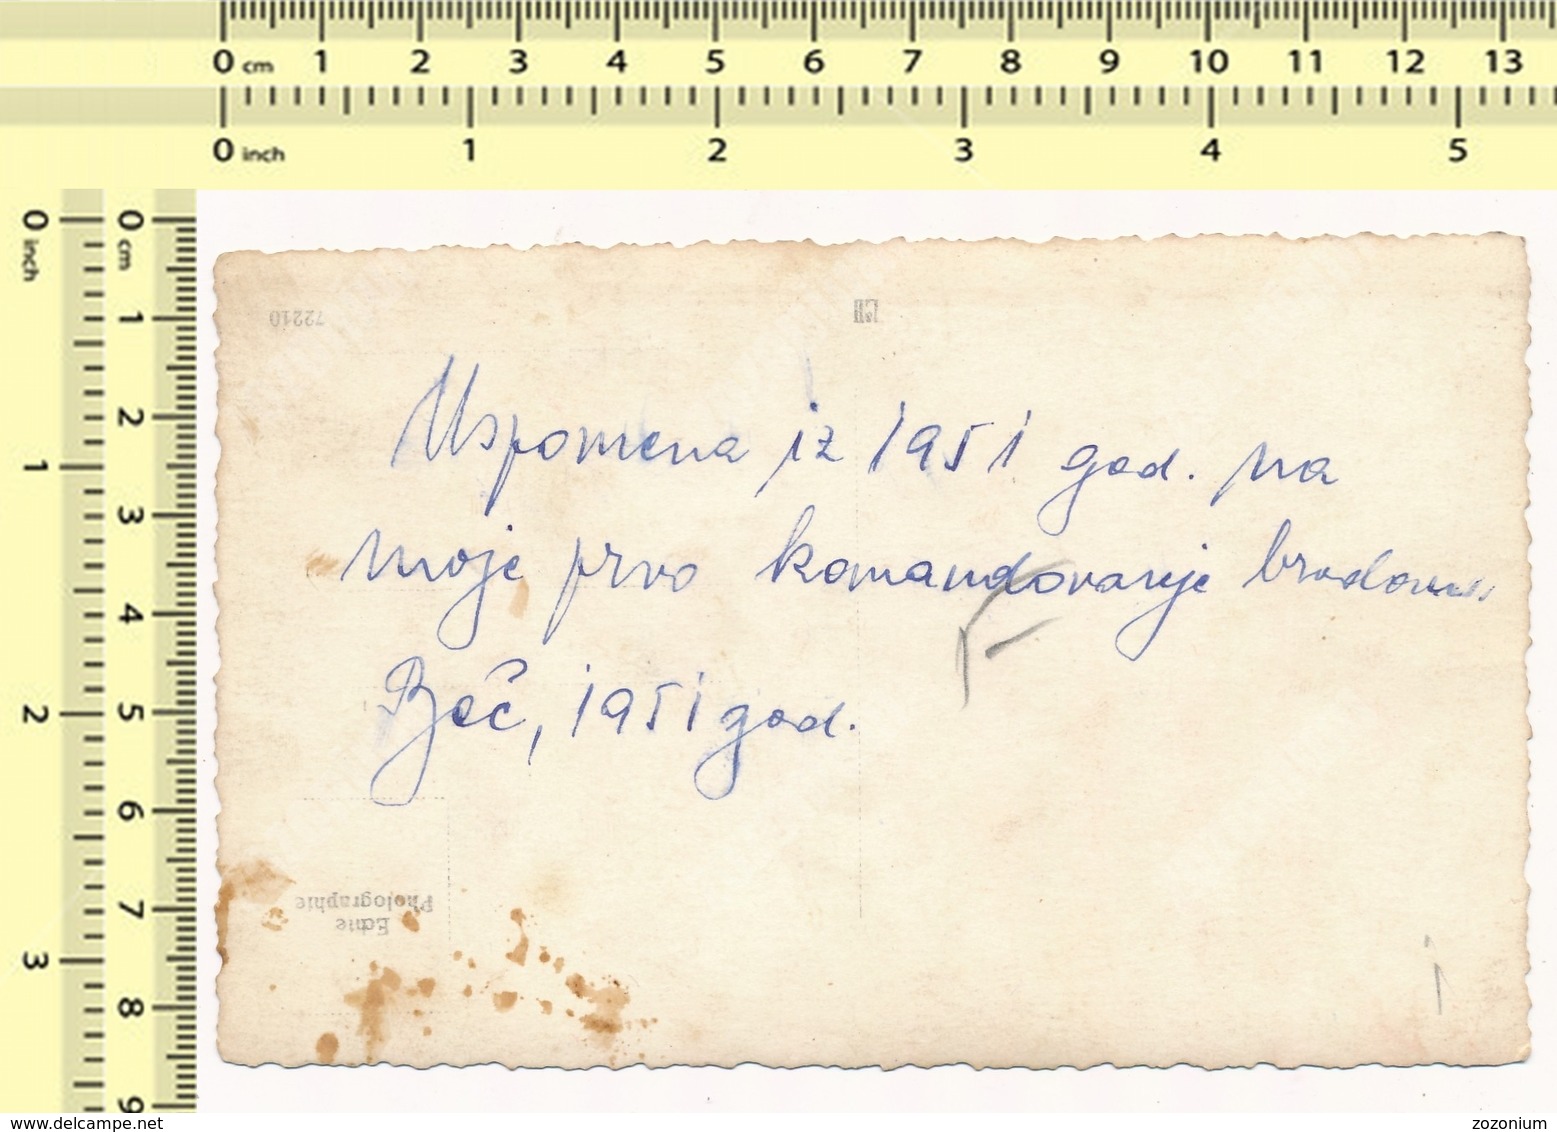 0 cm 1 2 3 4 5 6 7 8 9 10 11 12 13
0 inch 1 2 3 4 5
0 inch 1 2 3
0 cm 1 2 3 4 5 6 7 8 9
72210
Uspomena iz 1951 god. na
moje prvo komandovanje brodom
Beč, 1951 god.
Echte
Photographie
1
www.delcampe.net
zozonium